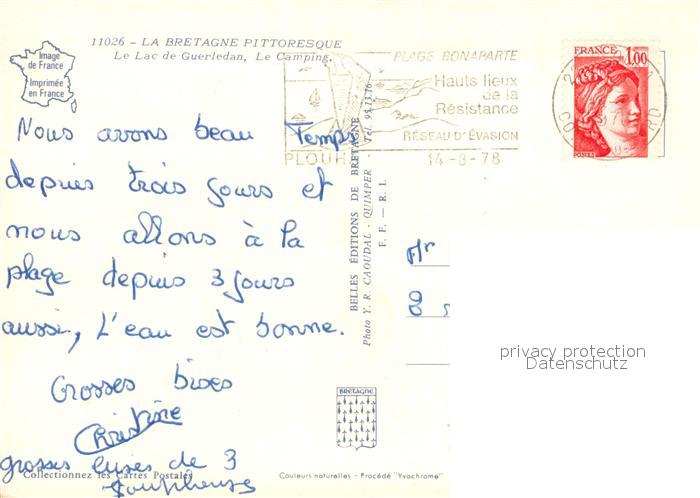 11026 - LA BRETAGNE PITTORESQUE
Le Lac de Guerledan, Le Camping.
Image
de France
Imprimée
en France
PLAGE BONAPARTE
Hauts lieux
de la
Résistance
RÉSEAU D'ÉVASION
PLOUH
14-8-78
FRANCE 1,00
POSTES
Nous avons beau Temps
depuis trois jours et
nous allons à la
plage depuis 3 jours
aussi, L'eau est bonne.
Grosses bises
Christine
grosses bises de 3
BELLES ÉDITIONS DE BRETAGNE
Photo Y. R. CAOUDAL - QUIMPER - Tél. 95.13.16
F. F. - R. I.
Mr
8
BRETAGNE
Collectionnez les Cartes Postales
Couleurs naturelles - Procédé "Yvochrome"
privacy protection
Datenschutz